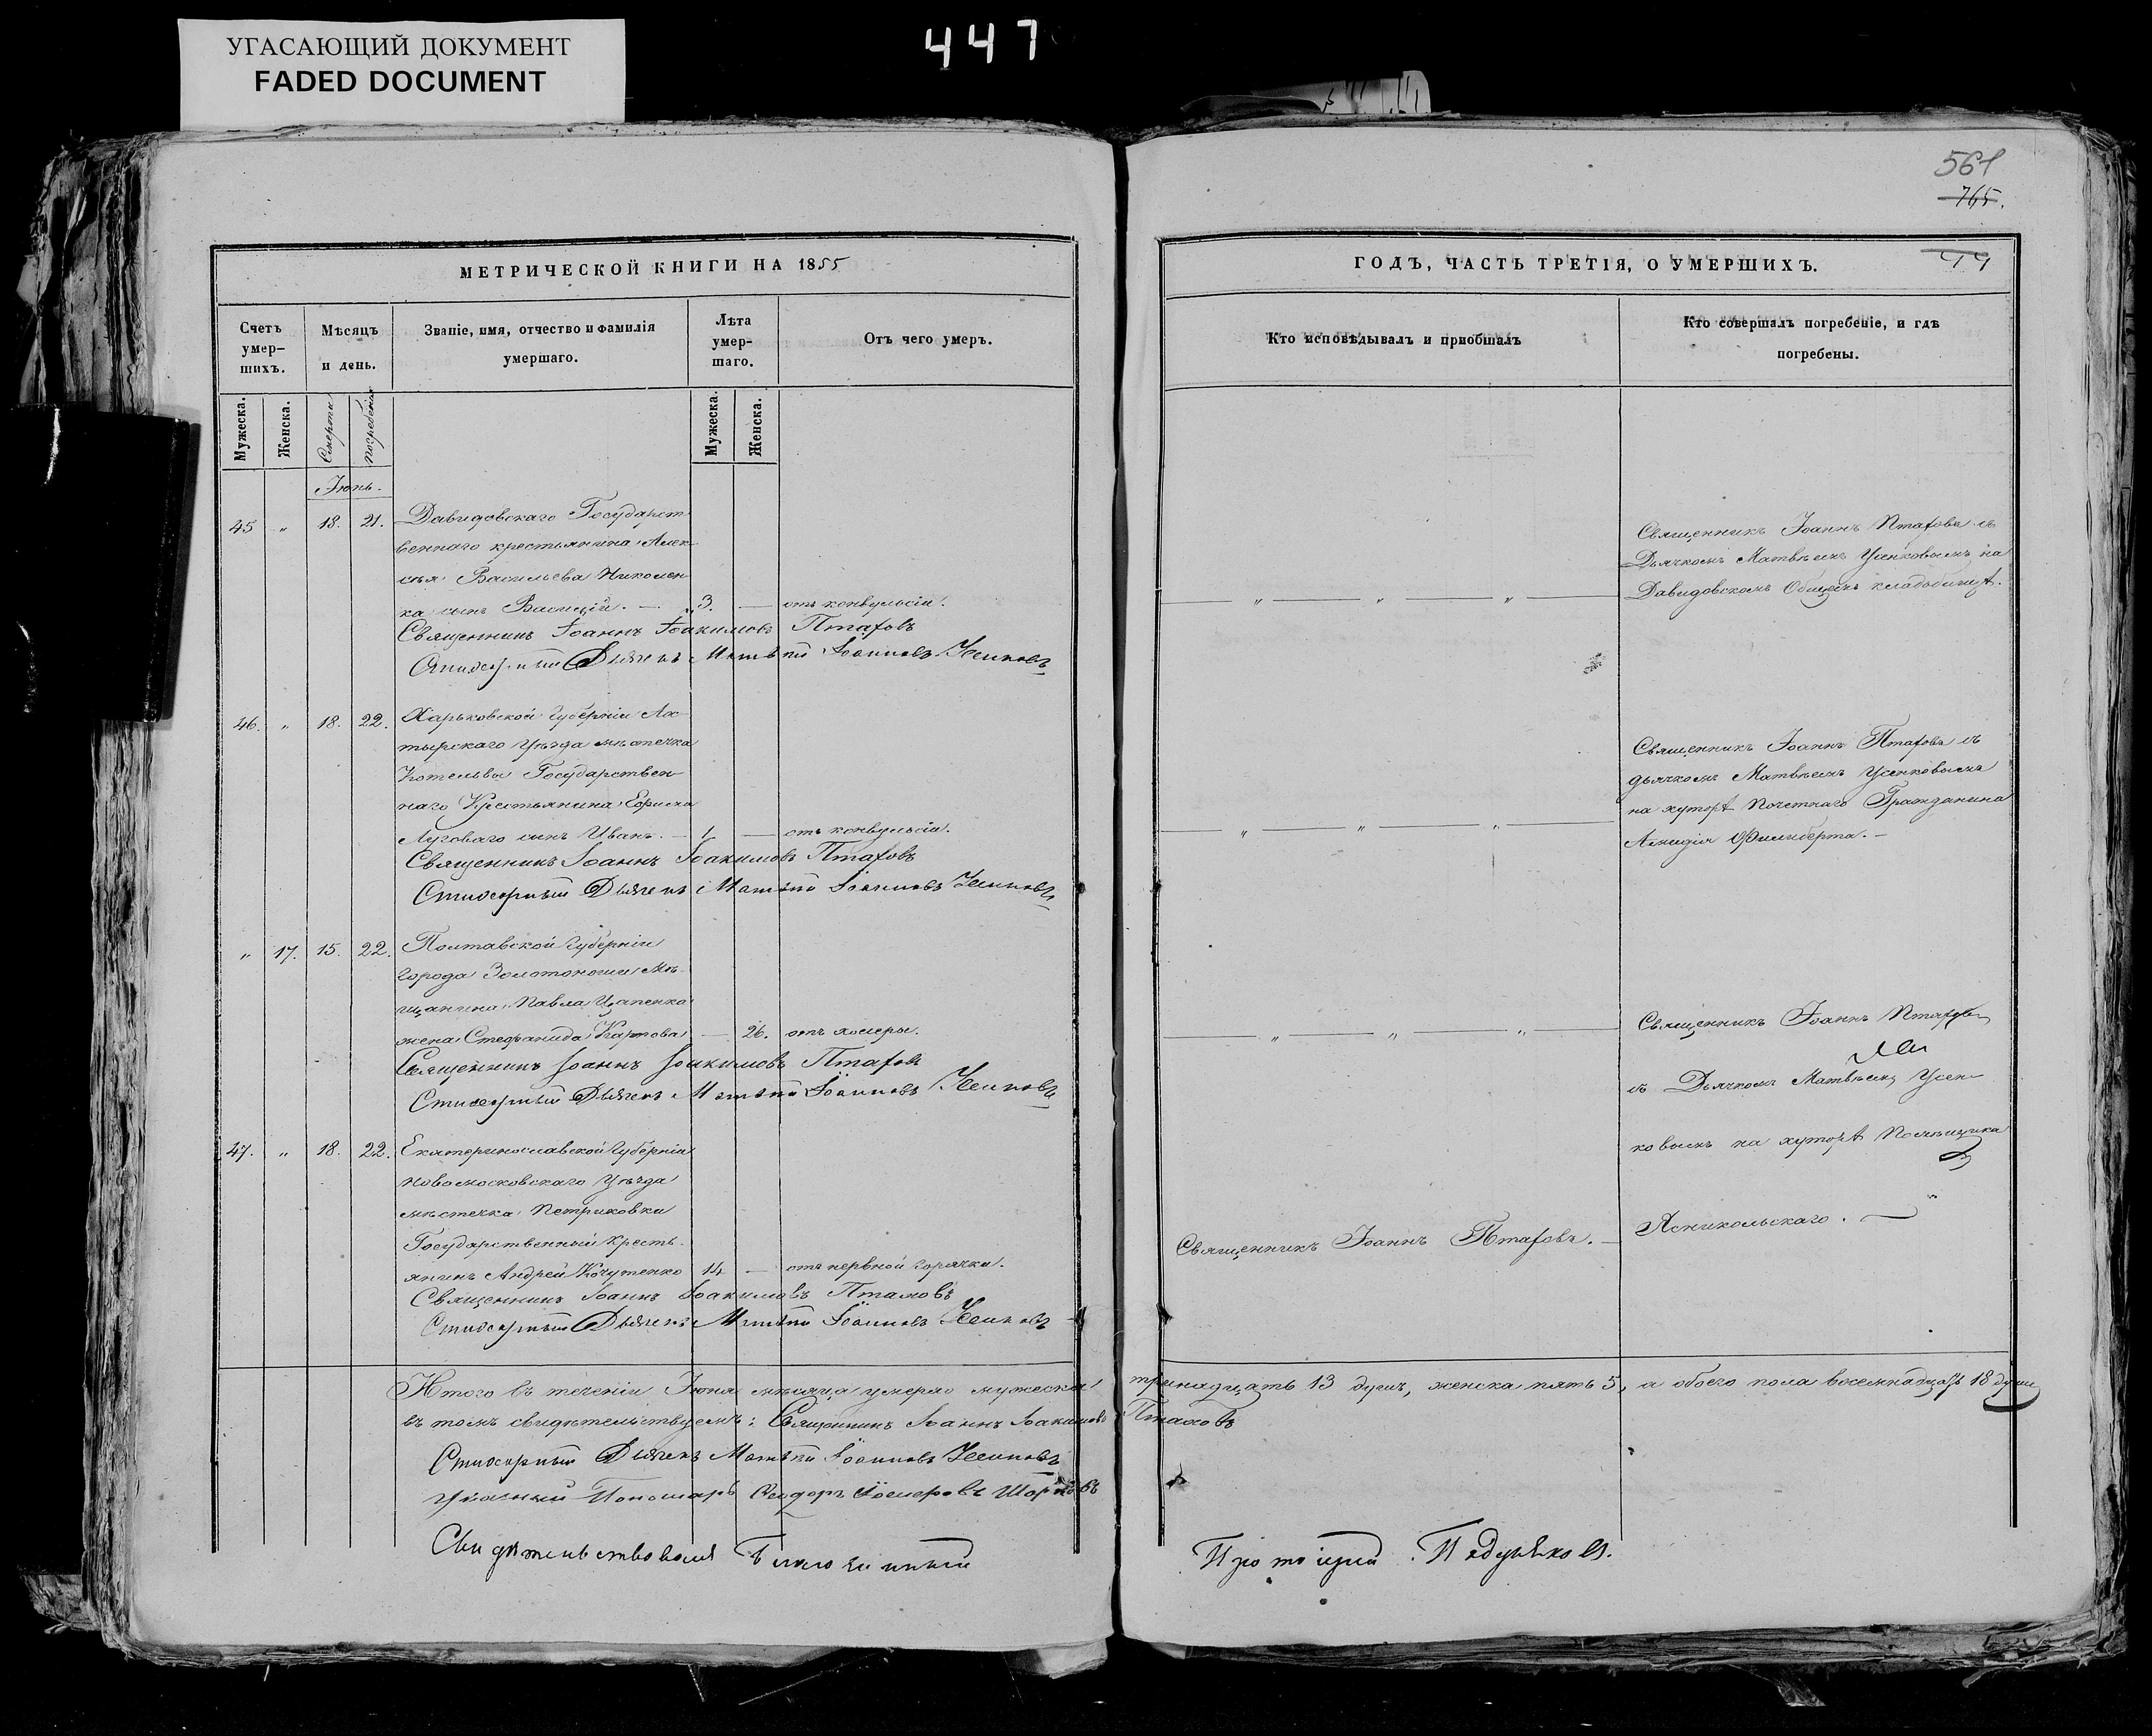 УГАСАЮЩИЙ ДОКУМЕНТ
FADED DOCUMENT
447
561
765.
МЕТРИЧЕСКОЙ КНИГИ НА 1855
Счетъ умер-шихъ.
Мѣсяцъ и день.
Званіе, имя, отчество и фамилія умершаго.
Лѣта умер-шаго.
Отъ чего умеръ.
Мужеска.
Женска.
Смерти
погребенія
Мужеска.
Женска.
Іюнь.
45 " 18. 21. Давидовскаго Государст
веннаго крестьянина Алек
сѣя Васильева Николен
ка сынъ Василій. — 3. — отъ конвульсіи.
Священникъ Іоаннъ Іоакимовъ Птаховъ
Стихарный Дьячекъ Матвѣй Іоанновъ Усиковъ
46. " 18. 22. Харьковской Губерніи Ах
тырскаго Уѣзда мѣстечка
Котельвы Государствен
наго Крестьянина
Луговаго сынъ Иванъ. — 1 — отъ конвульсіи.
Священникъ Іоаннъ Іоакимовъ Птаховъ
Стихарный Дьячекъ Матвѣй Іоанновъ Усиковъ
" 17. 15. 22. Полтавской Губерніи
города Золотоноши мѣ
щанина Павла Цапенка
жена Стефанида Карпова — 26. отъ холеры.
Священникъ Іоаннъ Іоакимовъ Птаховъ
Стихарный Дьячекъ Матвѣй Іоанновъ Усиковъ
47. " 18. 22. Екатеринославской Губерніи
Новомосковскаго Уѣзда
мѣстечка Петриковки
Государственный Кресть
янинъ Андрей Кочутенко 14 — отъ нервной горячки.
Священникъ Іоаннъ Іоакимовъ Птаховъ
Стихарный Дьячекъ Матвѣй Іоанновъ Усиковъ
Итого въ теченіи Іюня мѣсяца умерло мужеска
въ томъ свидѣтельствуемъ: Священникъ Іоаннъ Іоакимовъ
Стихарный Дьячекъ Матвѣй Іоанновъ Усиковъ
Указный Пономарь Ѳеодоръ
Свидѣтельствовалъ Благочинный
ГОДЪ, ЧАСТЬ ТРЕТІЯ, О УМЕРШИХЪ.
Кто исповѣдывалъ и пріобщалъ
Кто совершалъ погребеніе, и гдѣ погребены.
" " "
Священникъ Іоаннъ Птаховъ съ
Дьячкомъ Матвѣемъ Усиковымъ на
Давидовскомъ Общемъ кладбищѣ.
" " "
Священникъ Іоаннъ Птаховъ съ
дьячкомъ Матвѣемъ Усиковымъ
на хуторѣ Почетнаго Гражданина
Амедія Филиберта. —
" " "
Священникъ Іоаннъ Птаховъ
съ Дьячкомъ Матвѣемъ Усен
ковымъ на хуторѣ Помѣщика
Яснипольскаго.
Священникъ Іоаннъ Птаховъ.
тринадцать 13 душъ, женска пять 5, а обоего пола восемнадцать 18 душъ
Птаховъ
Протоіерей